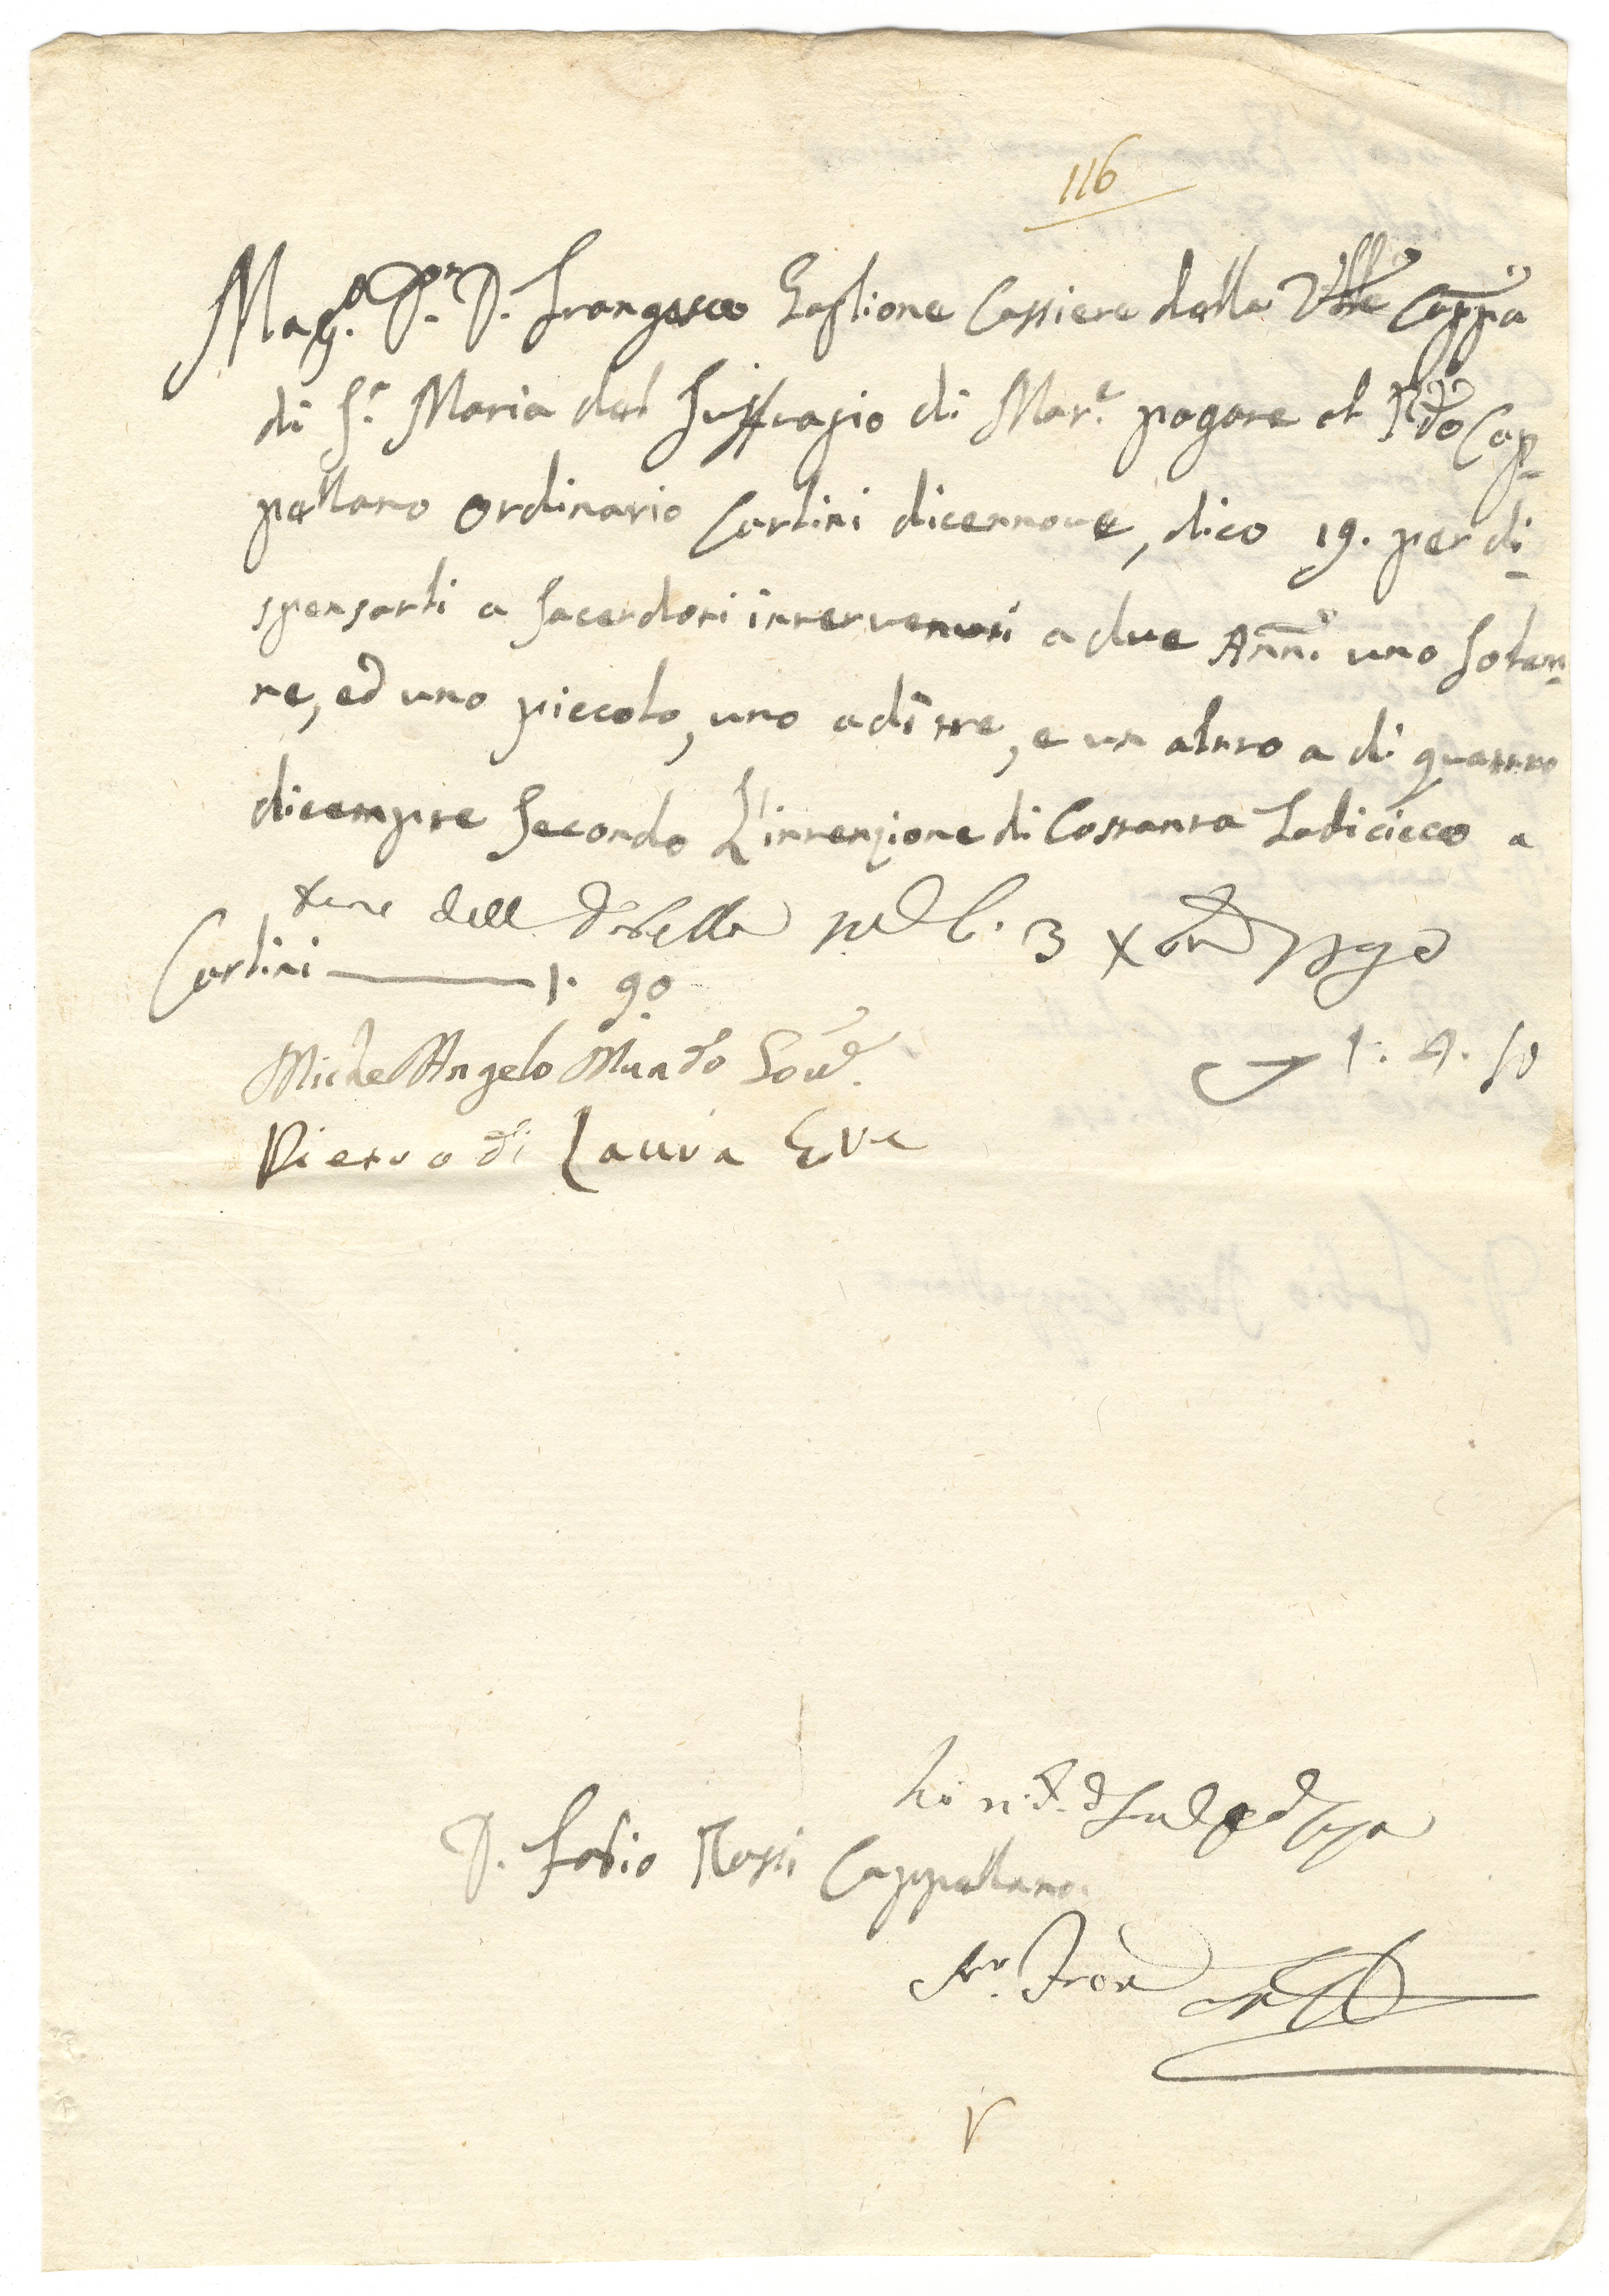 116
Mag.co Sr. D. Francesco Taglione Cassiere della Vble Cappa
di S.a Maria del Suffragio di Mar.e pagare al Rdo Cap-
pellano ordinario Carlini dicennove, dico 19. per di-
spensarli a Sacerdoti intervenuti a due Anni. uno Solen-
ne, ed uno piccolo, uno a di tre, e un altro a di quattro
dicempre Secondo L'intenzione di Costanza Lodicicco a
tere dell
Carlini — 1. 90
Michel Angelo Mundo
Pietro di Laura
D. Fabio Rossi Cappellano